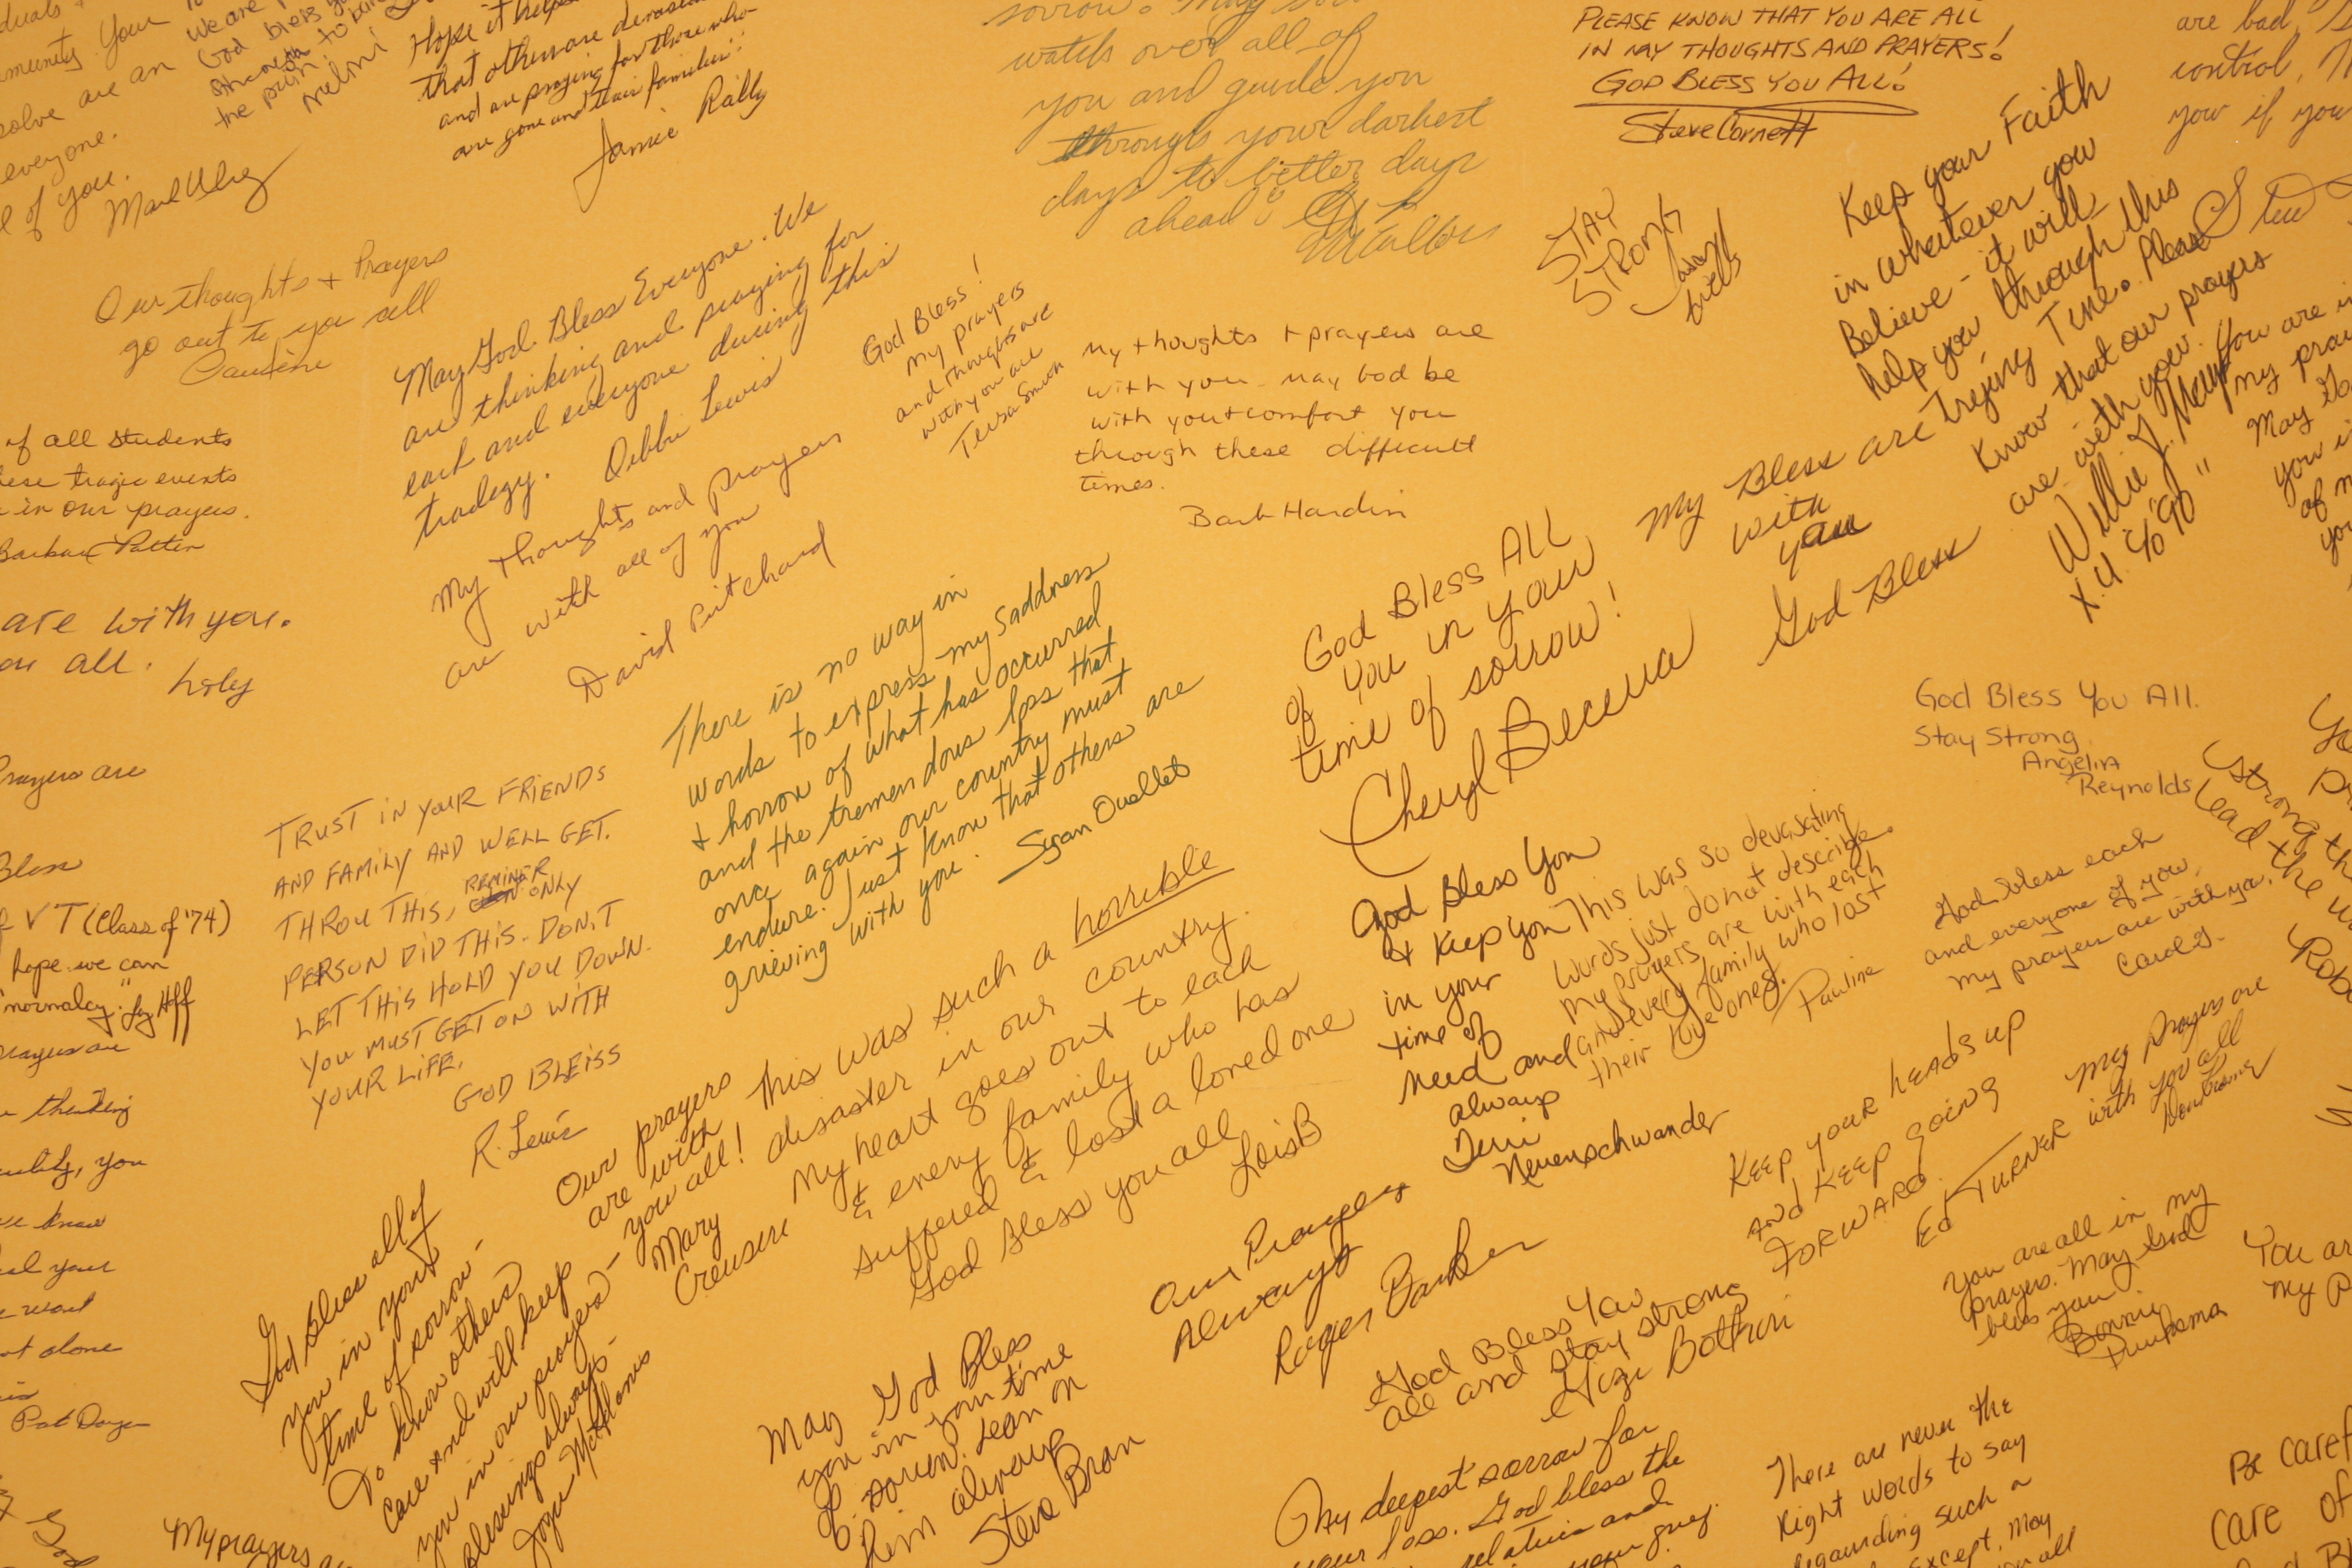 everyone.
of you.
We are
God bless
the pain
Hope it helps
that others are
and are praying for those who
are gone and their families!
Jamie Rally
watch over all of
you and guide you
through your darkest
days to better days
ahead
PLEASE KNOW THAT YOU ARE ALL
IN MY THOUGHTS AND PRAYERS!
GOD BLESS YOU ALL!
Steve Cornett
are bad,
control,
you if you
Our thoughts + Prayers
go out to you all
May God Bless Everyone. We
are thinking and praying for
each and everyone during this
tradegy. Debbie Lewis
God Bless!
My prayers
and thoughts are
with you all
Teresa Smith
My thoughts + prayers are
with you. May God be
with you + comfort you
through these difficult
times.
Barb Hardin
STAY
STRONG
Keep your Faith
in whatever you
Believe - it will
help you through this
Trying Time. Please
Know that our prayers
are with you.
Willie J.
X.U. '90"
You are in
my
May
of all students
these tragic events
in our prayers.
Barbara Patten
are with you.
all.
My thoughts and prayers
are with all of you
David Pritchard
There is no way in
words to express my saddness
+ horror of what has occurred
and the tremendous loss that
once again our country must
endure. Just know that others are
grieving with you.
Susan Ouellet
God Bless ALL
of you in your
time of sorrow!
Cheryl Becerra
My Bless are
with
you
God Bless
God Bless You All.
Stay Strong
Angelia
Reynolds
Prayers are
Bless
VT (Class of '74)
hope we can
"normalcy."
prayers are
thinking
you
know
your
want
alone
Pat
TRUST IN YOUR FRIENDS
AND FAMILY AND WELL GET.
THROU THIS, REMINER ONLY
PERSON DID THIS. DON,T
LET THIS HOLD YOU DOWN.
YOU MUST GET ON WITH
YOUR LIFE.
GOD BLEISS
R. Lewis
Our prayers
are with
you all!
Mary
Creusere
This was such a horrible
disaster in our country.
My heart goes out to each
& every family who has
suffered & lost a loved one
God bless you all
Lois B
God Bless You
& Keep you
in your
time of
need and
always
Terri
Neuenschwander
This was so devasating
words just do not describe.
My prayers are with each
and every family who lost
their love ones.
Pauline
God bless each
and everyone of you,
my prayers are with you.
Carol J.
Strong
Lead the
Keep your heads up
AND KEEP going
FORWARD
Ed TURNER
My Prayers are
with you all
God bless all of
you in your
time of sorrow -
To know others
care and will keep
you in our prayers -
Blessings always -
Our Prayers
Always
Roger Barker
God Bless You
all and stay strong
You are all in my
prayers. May God
bless you
Bonnie
May God Bless
you in your time
of sorrow. Lean on
him always
Steve Bran
My deepest sorrow for
your loss. God bless the
There are never the
Right words to say
regaurding such a
Except, May
You are
my
Be caref
care of
My prayers